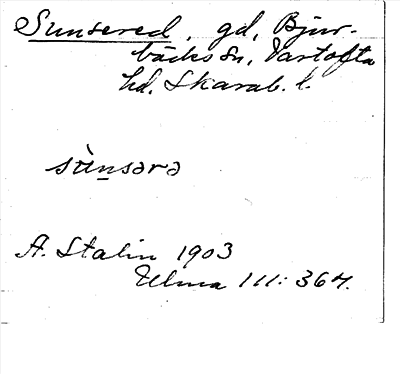 Sunsered, gd, Bjur-
bäcks sn, Vartofta
hd, Skarab. l.
sùnsərə
A. Stalin 1903
Ulma 111: 364.